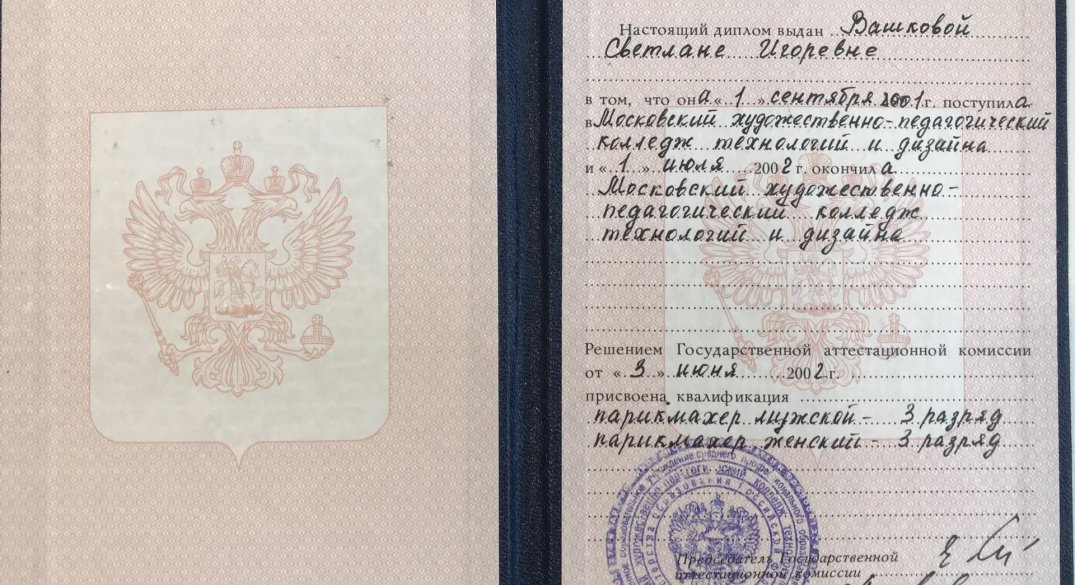 Настоящий диплом выдан Вашковой
Светлане Игоревне
в том, что она «1» сентября 2001 г. поступила
в Московский художественно-педагогический
колледж технологий и дизайна
и «1» июля 2002 г. окончила
Московский художественно-
педагогический колледж
технологий и дизайна
Решением Государственной аттестационной комиссии
от «3» июня 2002 г.
присвоена квалификация
парикмахер мужской - 3 разряд
парикмахер женский - 3 разряд
Председатель Государственной
аттестационной комиссии